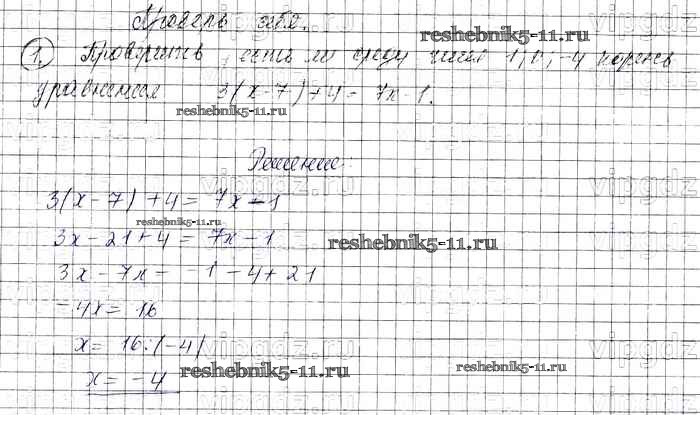 Проверь себя.
1. Проверить, есть ли среди чисел -1; 0; -4 корень
уравнения 3(x-7)+4 = 7x-1.
Решение:
3(x-7)+4 = 7x-1
3x-21+4 = 7x-1
3x-7x = -1-4+21
-4x = 16
x = 16:(-4)
x = -4
reshebnik5-11.ru
reshebnik5-11.ru
reshebnik5-11.ru
reshebnik5-11.ru
reshebnik5-11.ru
reshebnik5-11.ru
vipgdz
vipgdz
vipgdz
vipgdz
vipgdz